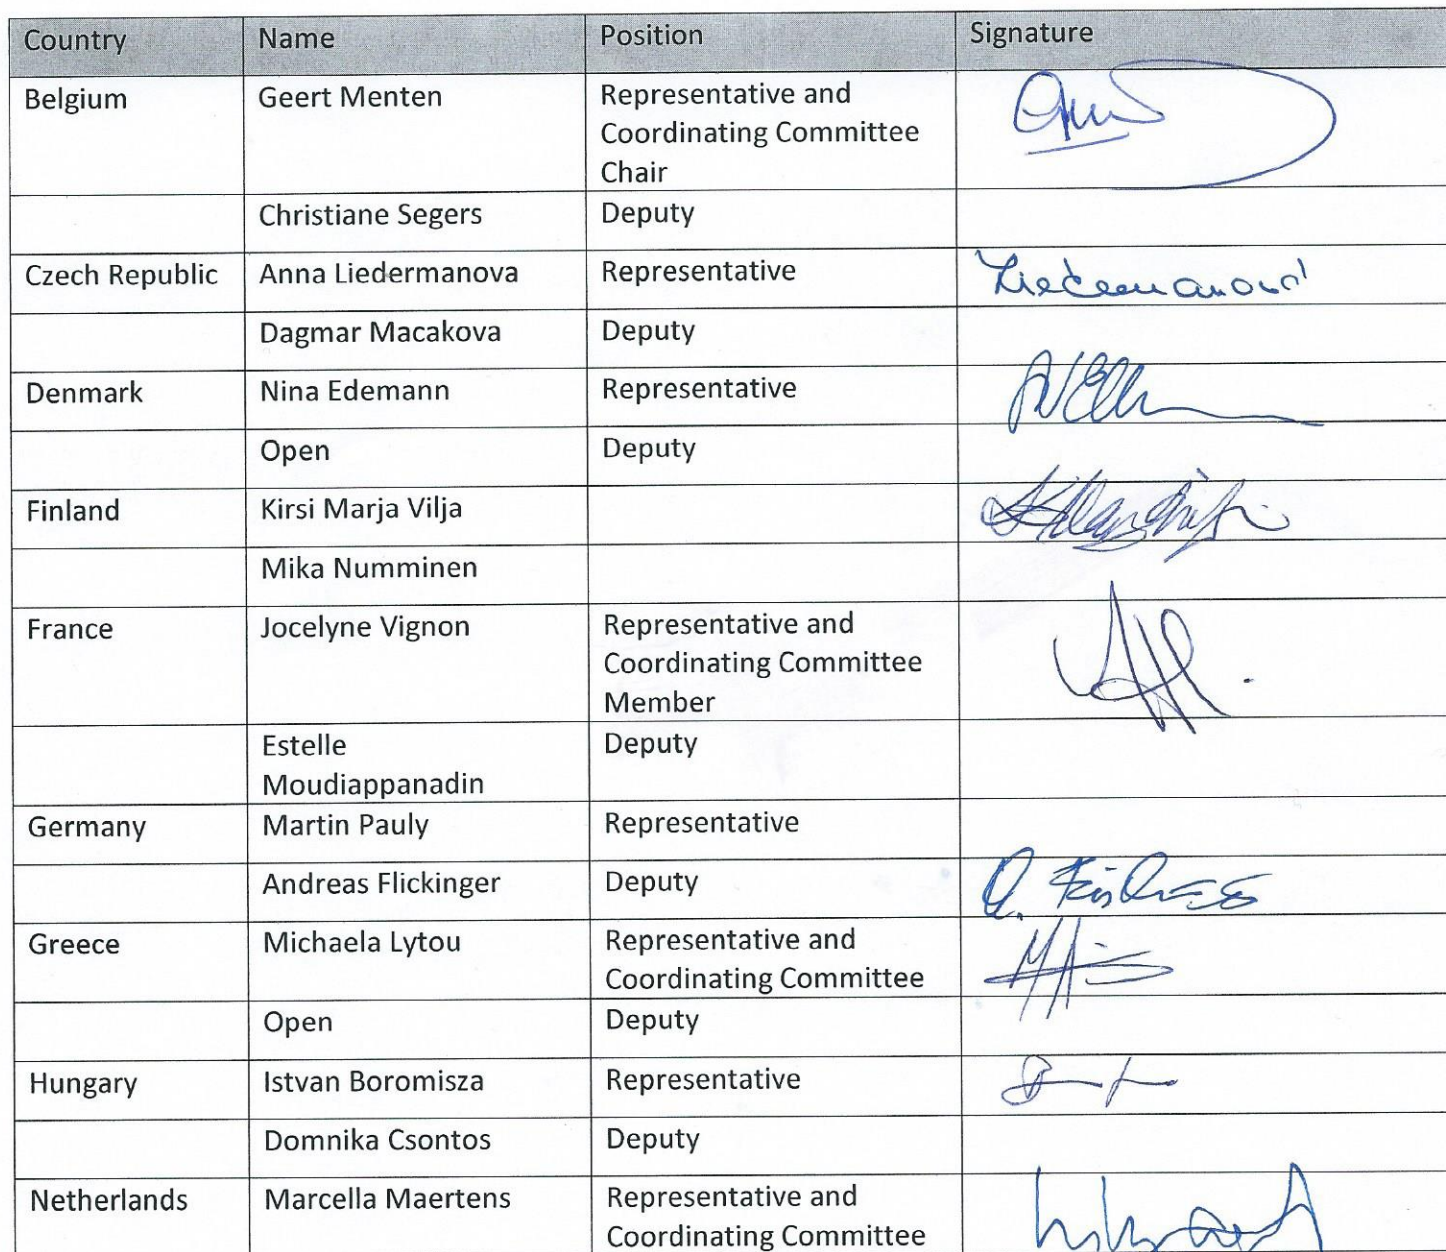 Country Name Position Signature
Belgium Geert Menten Representative and
Coordinating Committee
Chair
Christiane Segers Deputy
Czech Republic Anna Liedermanova Representative
Dagmar Macakova Deputy
Denmark Nina Edemann Representative
Open Deputy
Finland Kirsi Marja Vilja
Mika Numminen
France Jocelyne Vignon Representative and
Coordinating Committee
Member
Estelle Deputy
Moudiappanadin
Germany Martin Pauly Representative
Andreas Flickinger Deputy
Greece Michaela Lytou Representative and
Coordinating Committee
Open Deputy
Hungary Istvan Boromisza Representative
Domnika Csontos Deputy
Netherlands Marcella Maertens Representative and
Coordinating Committee